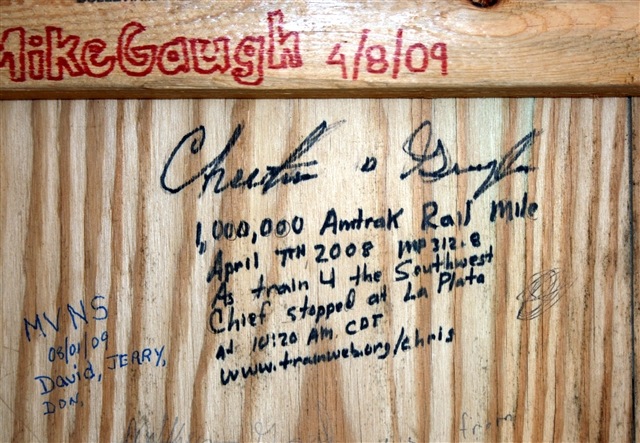 Mike Gaugh 4/8/09
1,000,000 Amtrak Rail Mile
April 7TH 2008 MP 312.8
As train 4 the Southwest
Chief stopped at La Plata
at 10:20 AM CDT
www.trainweb.org/chris
MVNS
08/01/09
David, JERRY,
DON,
from